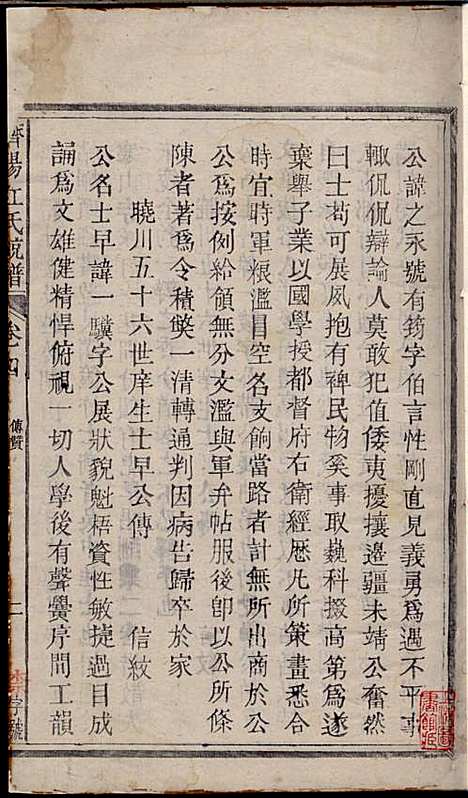 公諱之永號有筠字伯言性剛直見義勇爲遇不平事
輙侃侃辯論人莫敢犯值倭夷擾攘邊疆未靖公奮然
曰士苟可展風抱有裨民物奚事取巍科掇高第爲遂
棄舉子業以國學授都督府右衛經歷凡所策畫悉合
時宜時軍糧濫冒空名支餉當路者計無所出商於公
公爲按例給領無分文濫與軍弁帖服後卽以公所條
陳者著爲令積獘一清轉通判因病告歸卒於家
曉川五十六世庠生士早公傳 信紋
公名士早諱一驥字公展狀貌魁梧資性敏捷過目成
誦爲文雄健精悍俯視一切人學後有聲黌序間工韻
濟陽江氏統譜 卷四 傳贊 二 字號